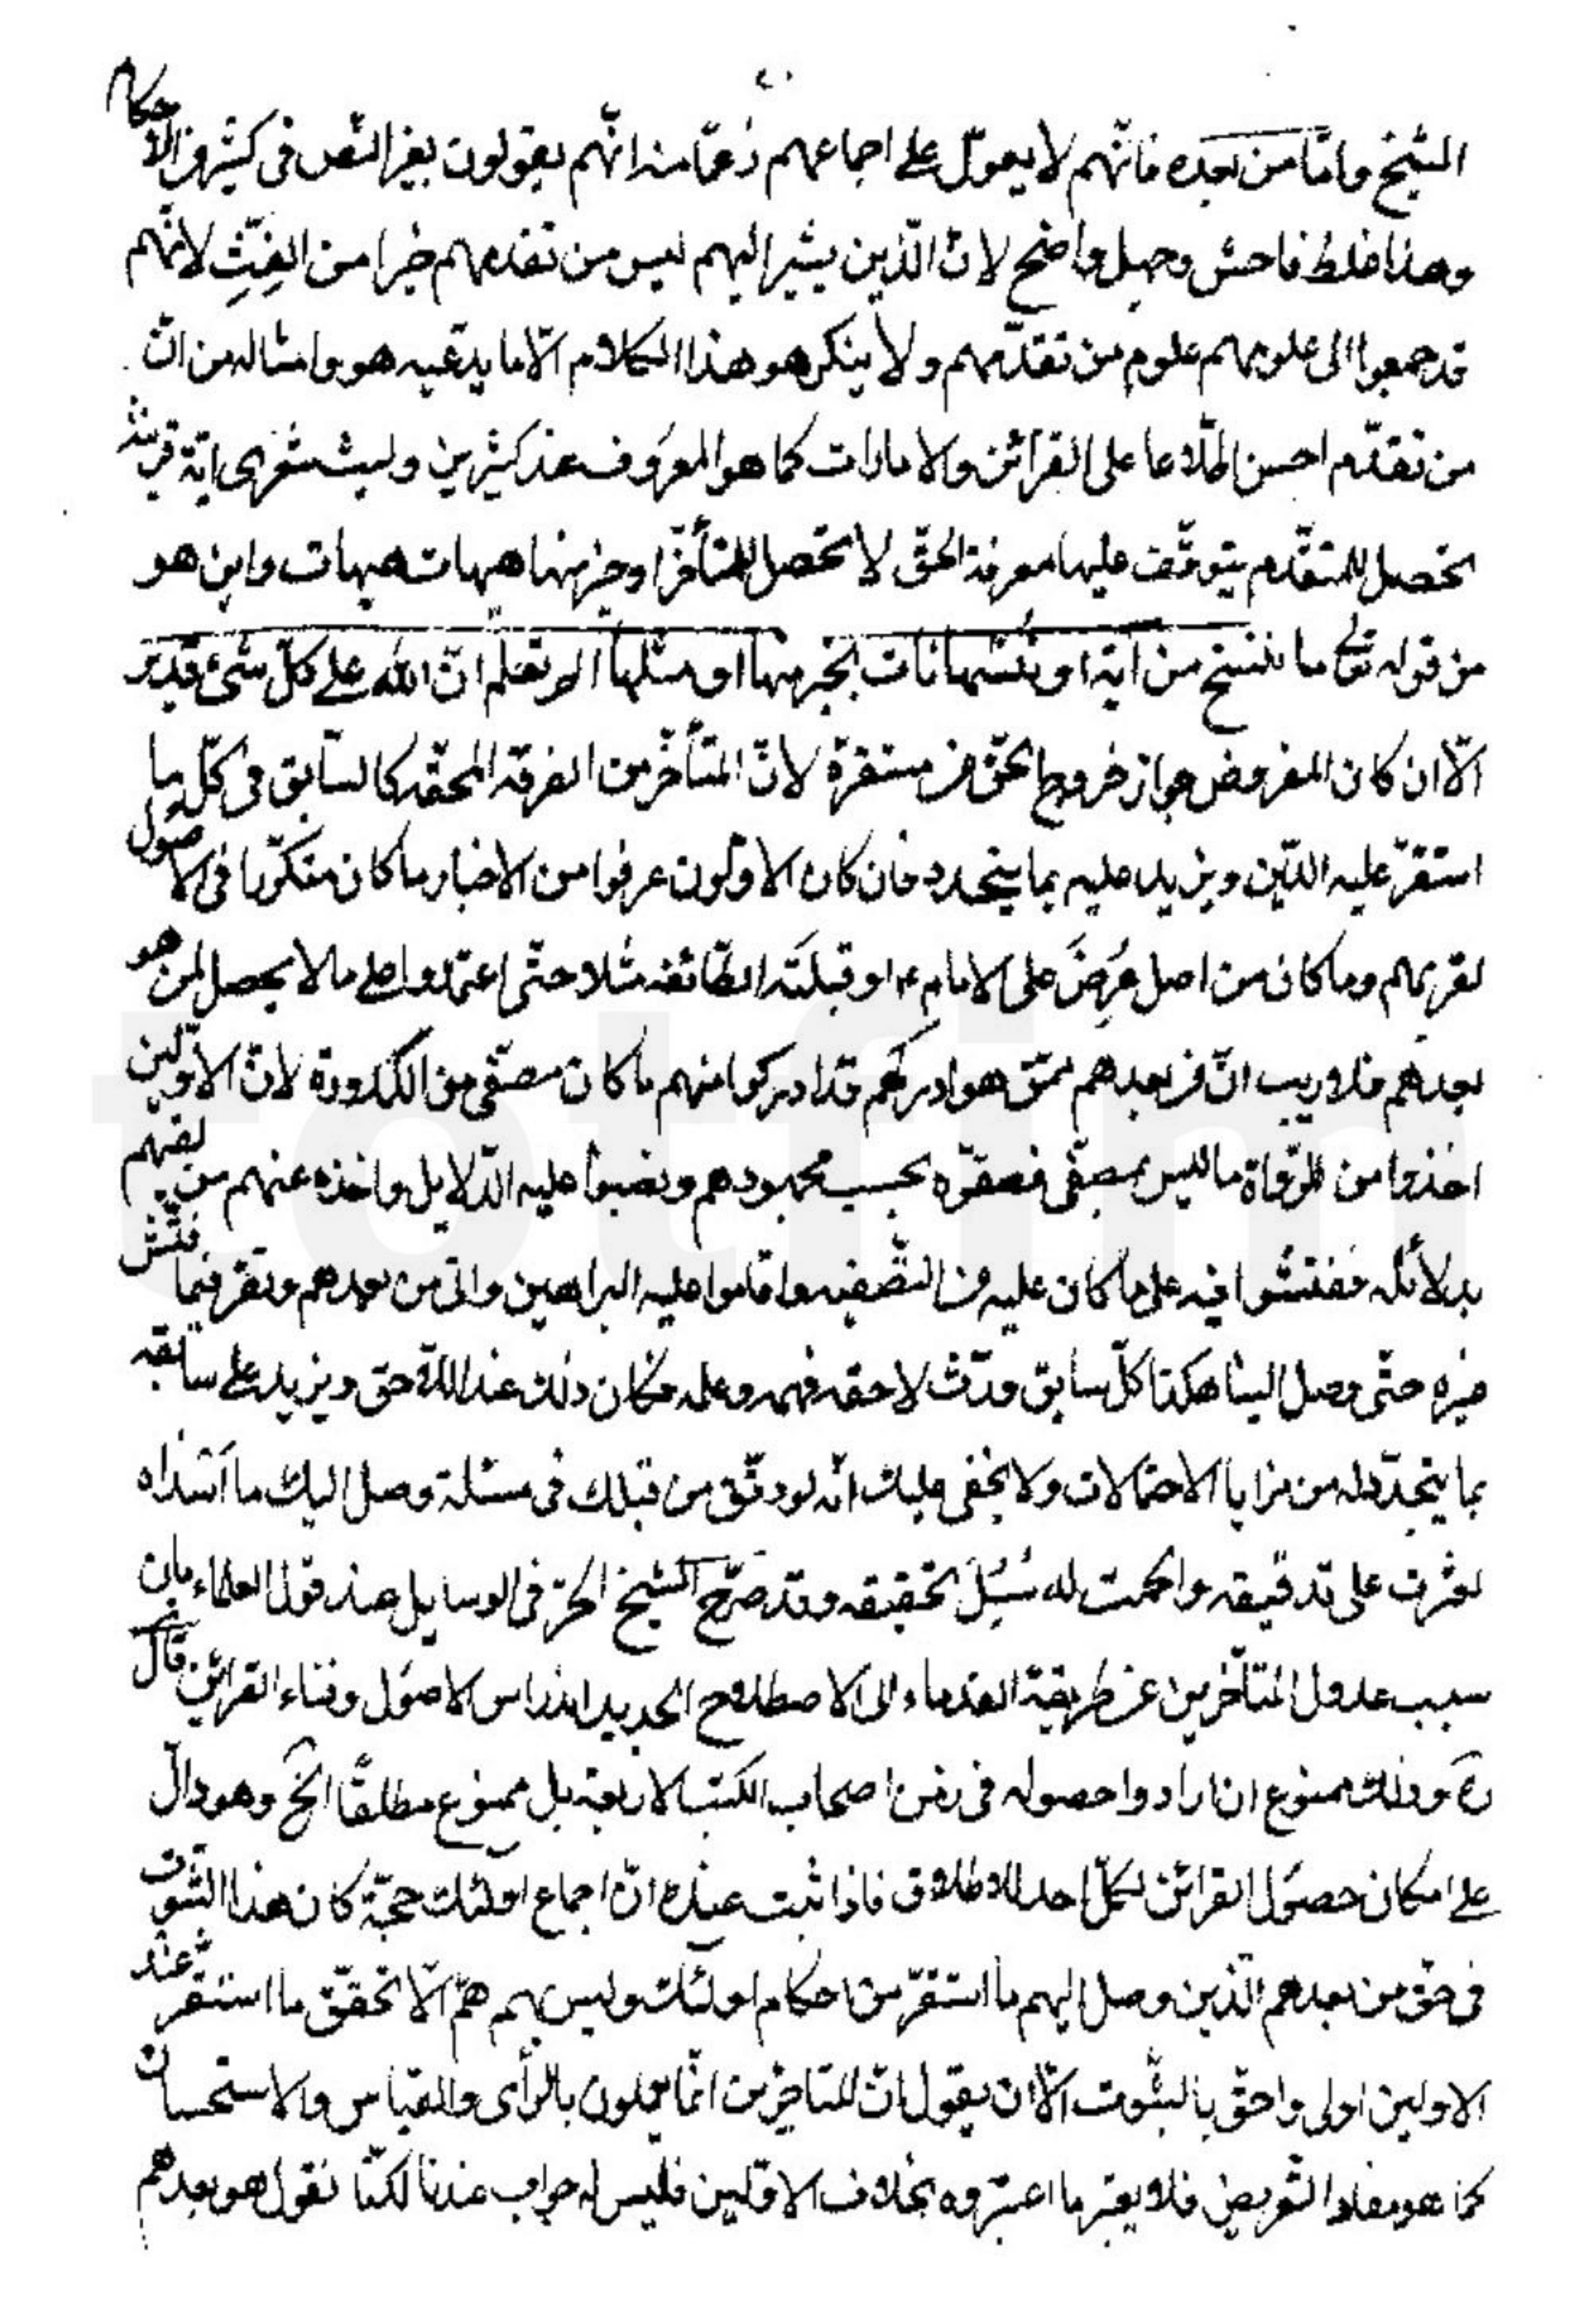 ٤٠
الشيخ وامّا من بعده فانّهم لا يعوّل على اجماعهم زعمًا منه انّهم يقولون بغير النّص فى كثير من الاحكام
وهذا غلط فاحش وجهل واضح لانّ الّذين يشير اليهم ليس من تقدمهم خيرا من الفِئتِ لانّهم
قد جمعوا الى علومهم علوم من تقدّمهم ولا ينكر هو هذا الكلام الّا ما يدّعيه هو وامثاله من انّ
من تقدّم احسن اطّلاعا على القرائن والامارات كما هو المعروف عند كثيرين وليت شعرى ايّة قرينة
تحصل للمتقدّم يتوقّف عليها معرفة الحقّ لا تحصل للمتأخّر او خير منها هيهات هيهات واين هو
من قوله تعالى ما ننسخ من آية او ننسها نات بخير منها او مثلها الم تعلم انّ الله على كلّ شئ قدير
الّا ان كان المفروض جواز خروج الحقّ عن مستقرّه لانّ المتأخّر من الفرقة المحقّه كالسّابق فى كلّ ما
استقرّ عليه الدّين ويزيد عليه بما يتجدد فان كان الاوّلون عرفوا من الاخبار ما كان متكرّرا فى الاصول
لقربهم وما كان من اصل عُرِضَ على الامام ع او قبلَتْه الطّائفة مثلا حتّى اعتمدوا على ما لا يحصل لمن هو
بعدهم فلا ريب انّ من بعدهم ممّن هو ادركهم قد ادركوا منهم ما كان مصفّى من الكدورة لانّ الاوّلين
اخذوا من الرّواة ما ليس بمصفّى فصفّوه بحسب مجهودهم ونصبوا عليه الدّلايل واخذه عنهم من لقيهم
بدلائله ففتشوا فيه على ما كان عليه من التّصفيه واقاموا عليه البراهين واتى من بعدهم ونقر فيما فتّش
غيره حتّى وصل الينا هكذا كلّ سابق ورّث لاحقه فهمه وعلمه فكان ذلك عند اللاحق ويزيد على سابقه
بما يتجدّد له من مزايا الاحتمالات ولا يخفى عليك انّه لو دقّق من قبلك فى مسئلة وصل اليك ما اسّداه
لعثرت على تدقيقه واحكمت له سُبُلَ تحقيقه وقد صرّح الشيخ الحرّ فى الوسايل عند قول العلماء بان
سبب عدول المتأخّرين عن طريقة القدماء الى الاصطلاح الجديد اندراس الاصول وفناء القرائن قال
ره وذلك ممنوع ان ارادوا حصوله فى زمن اصحاب الكتب الاربعة بل ممنوع مطلقًا الخ وهو دالّ
على امكان حصول القرائن لكلّ احد للاطلاق فاذا ثبت عنده انّ اجماع اولئك حجّة كان هذا الثّبوت
فى حقّ من بعدهم الّذين وصل اليهم ما استقرّ من احكام اولئك وليس بهم همّ الّا تحقّق ما استقرّ عند
الاولين اولى واحقّ بالثّبوت الّا ان يقول انّ المتاخّرين انّما يعملون بالرّأى والقياس والاستحسان
كما هو مفاد التّعريض فلا يعتبر ما اعتبروه بخلاف الاوّلين فليس له جواب عندنا لكنّا نقول هو بعدهم